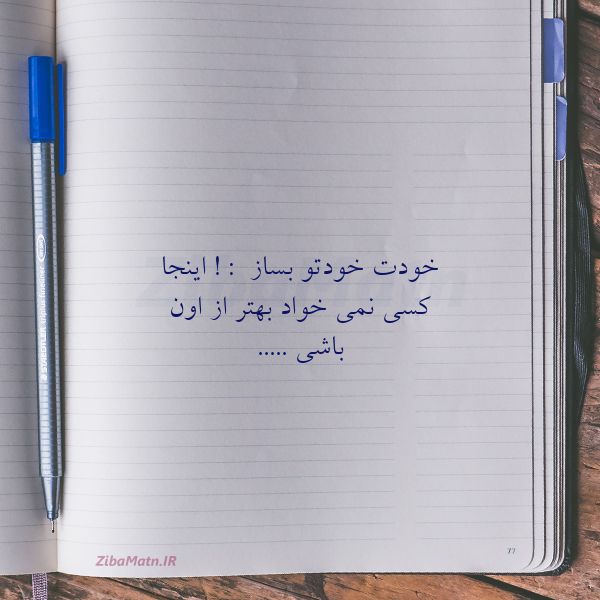 خودت خودتو بساز : ! اینجا
کسی نمی خواد بهتر از اون
باشی .....
ZibaMatn.IR
77